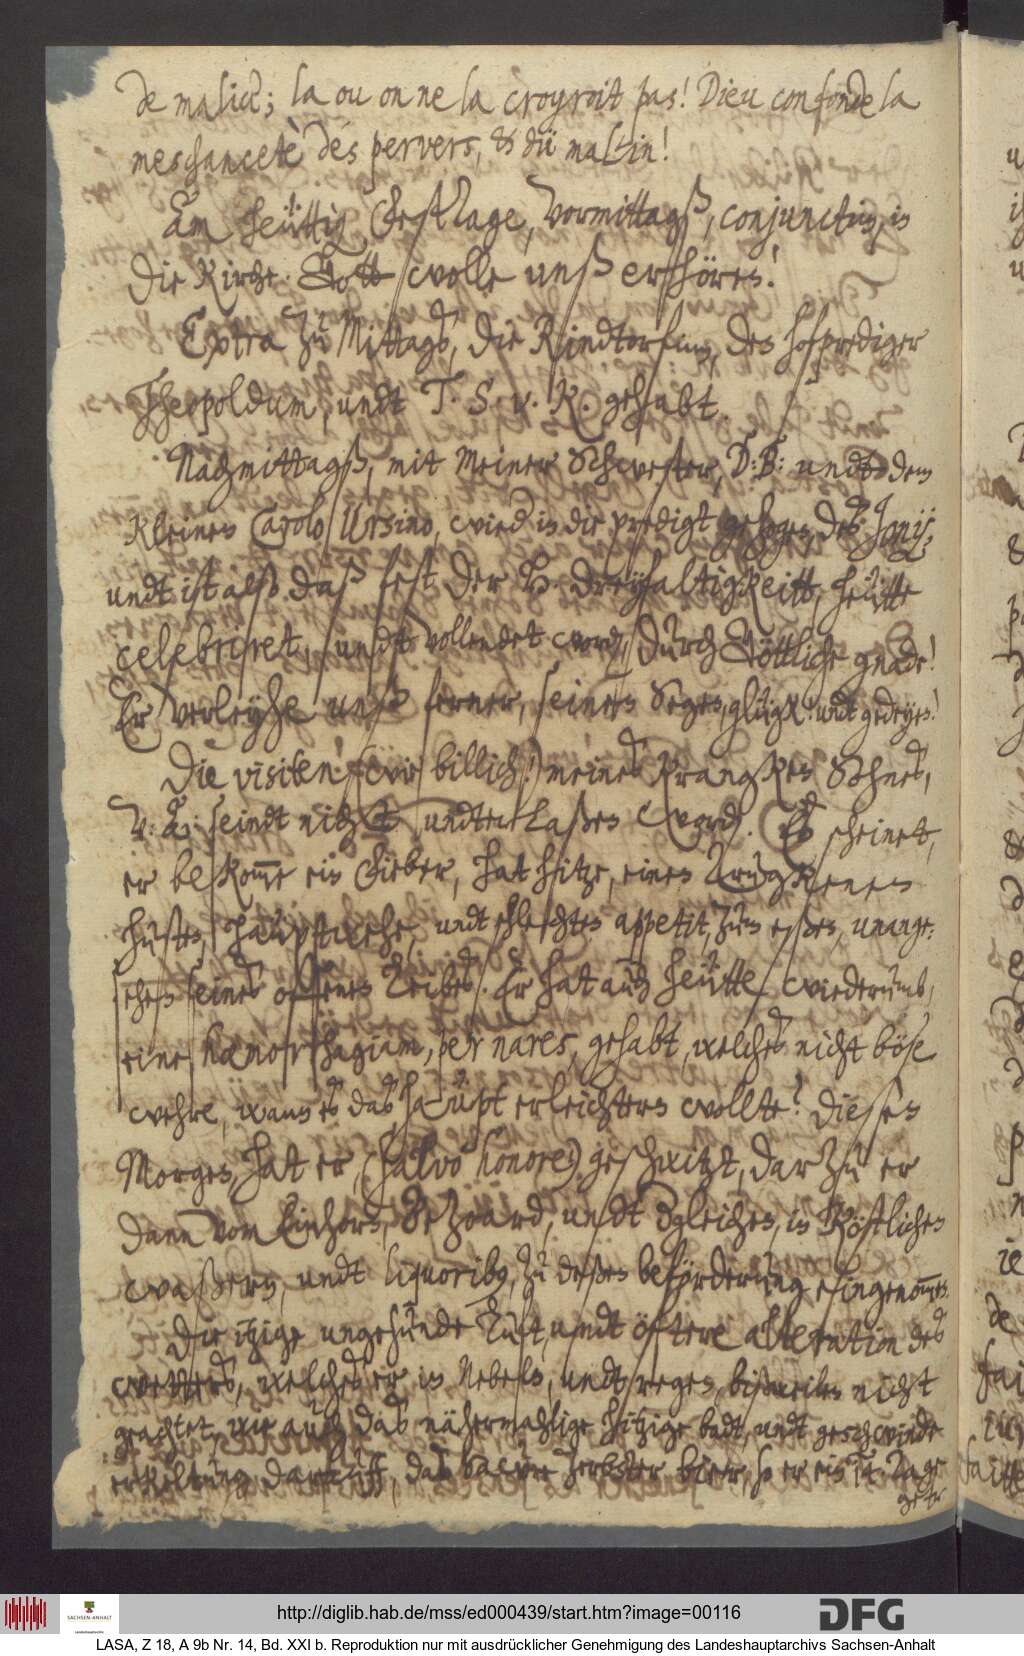 de malice; la ou on ne la croyroit pas! Dieu confonde la
meschanceté dés pervers, & dü malin!
Am heüttig Festtage, Vormittagß, conjunctim, in
die Kirche. Gott wolle unß erhören!
Extra zu Mittagß, die Rindtorfinn, des hofprediger
Theopoldum, undt T. S. v. K. gehabt.
Nachmittagß, mit Meiner Schwester, D: B: undt dem
Kleinen Carolo Ursino, wied in die predigt gezogen, des Jonij,
undt ist also daß fest der H. dreyfaltigkeitt, heütte
celebriret, undt vollendet word, durch Göttliche gnade!
Er verleyhe unß ferner, seinen Segen, glügk undt gedeyen!
Die visiten (wie billich!) meines Krangken Sohnes,
V: A: seindt nicht undterlaßen word. Es scheinet,
er bekom̅e ein Fieber, hat hitze, einen Trugkenen
husten, häuptwehe, undt schlechten appetit, zum eßen, unange-
sehen seines offenen Leibes. Er hat auch heütte wiederumb,
eine hæmorrhagiam, per nares, gehabt, welches nicht böse
wehre, wann es das haüpt erleichtern wollte? Diesen
Morgen, hat er, (salvo honore) geschwitzt, dar zu er
dann vom Einhorn, Bezoard, undt dgleichen, in köstlichen
waßern, undt liquoribus, zu deßen beförderung eingenom̅en.
Die itzige ungesunde Luft, undt öftere alteration des
wetters, welches er in Nebeln, undt regen, bißweilen nicht
geachtet, wie auch das nähermahlige hitzige badt, undt geschwinde
erkältung darauff, das Sawre Zerbster bier, so er ein 14 Tage
getr